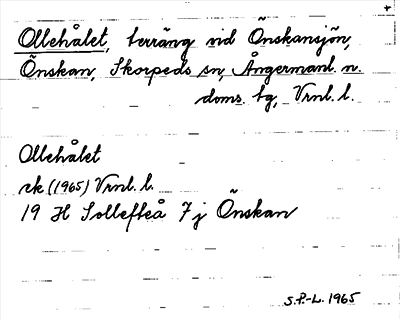 Ollehålet, terräng vid Önskansjön,
Önskan, Skorpeds sn, Ångermanl. n.
doms. tg, Vrnl. l.
Ollehålet
ek (1965) Vrnl. l.
19 H Sollefteå 7j Önskan
S.P.-L. 1965